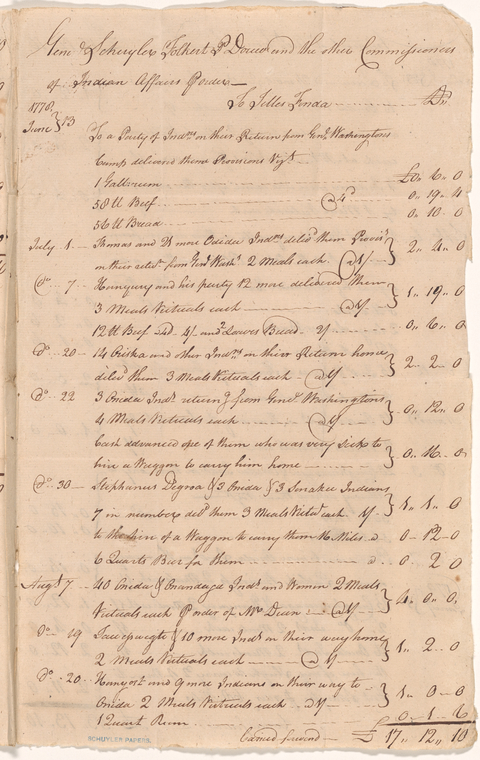 Genl Schuyler Volkert P. Douw and the other Commissioners
of Indian Affairs Porder
To Jelles Fonda Dr
1778
June 13
To a Party of Indns on their Return from Genl Washingtons
Camp delivered them Provisions Vizt
1 Gall rum £0,, 6,, 0
58 lb Beef @ 4d 0,, 19,, 4
56 lb Bread 0,, 10,, 0
July 1 Thomas and more Oneida Indns delivd them Provisn
on their return from Genl Wash. 2 Meals each @ 1/ 2,, 4,, 0
Do 7 and his party 12 more delivered them
3 Meals Victuals each @ 1/ 1,, 19,, 0
12 lb Beef 4/ and Loaves Bread 2/ 0,, 6,, 0
Do 20 14 and other Indns on their Return home
delvd them 3 Meals Victuals each @ 1/ 2,, 2,, 0
Do 22 3 Oneida Indns return'g from Genl Washingtons
4 Meals Victuals each @ 1/ 0,, 12,, 0
Cash advanced one of them who was very Sick to
hire a Waggon to carry him home 0,, 16,, 0
Do 30 Stephanus Degroa & 3 Oneida & 3 Indians
7 in number delvd them 3 Meals Victs each 1/ 1,, 1,, 0
to the hire of a Waggon to carry them 16 Miles 0,, 12,, 0
6 Quarts Beer for them 0,, 2,, 0
Augt 7 40 Oneida & Onandaga Indns and Women 2 Meals
Victuals each Porder of Mr Dean @ 1/ 4,, 0,, 0
Do 19 & 10 more Indns on their way home
2 Meals Victuals each @ 1/ 1,, 2,, 0
Do 20 and 9 more Indians on their way to
Onida 2 Meals Victuals each 1/ 1,, 0,, 0
1 Quart Rum 0,, 1,, 6
Carried forward £ 17,, 12,, 10
SCHUYLER PAPERS.